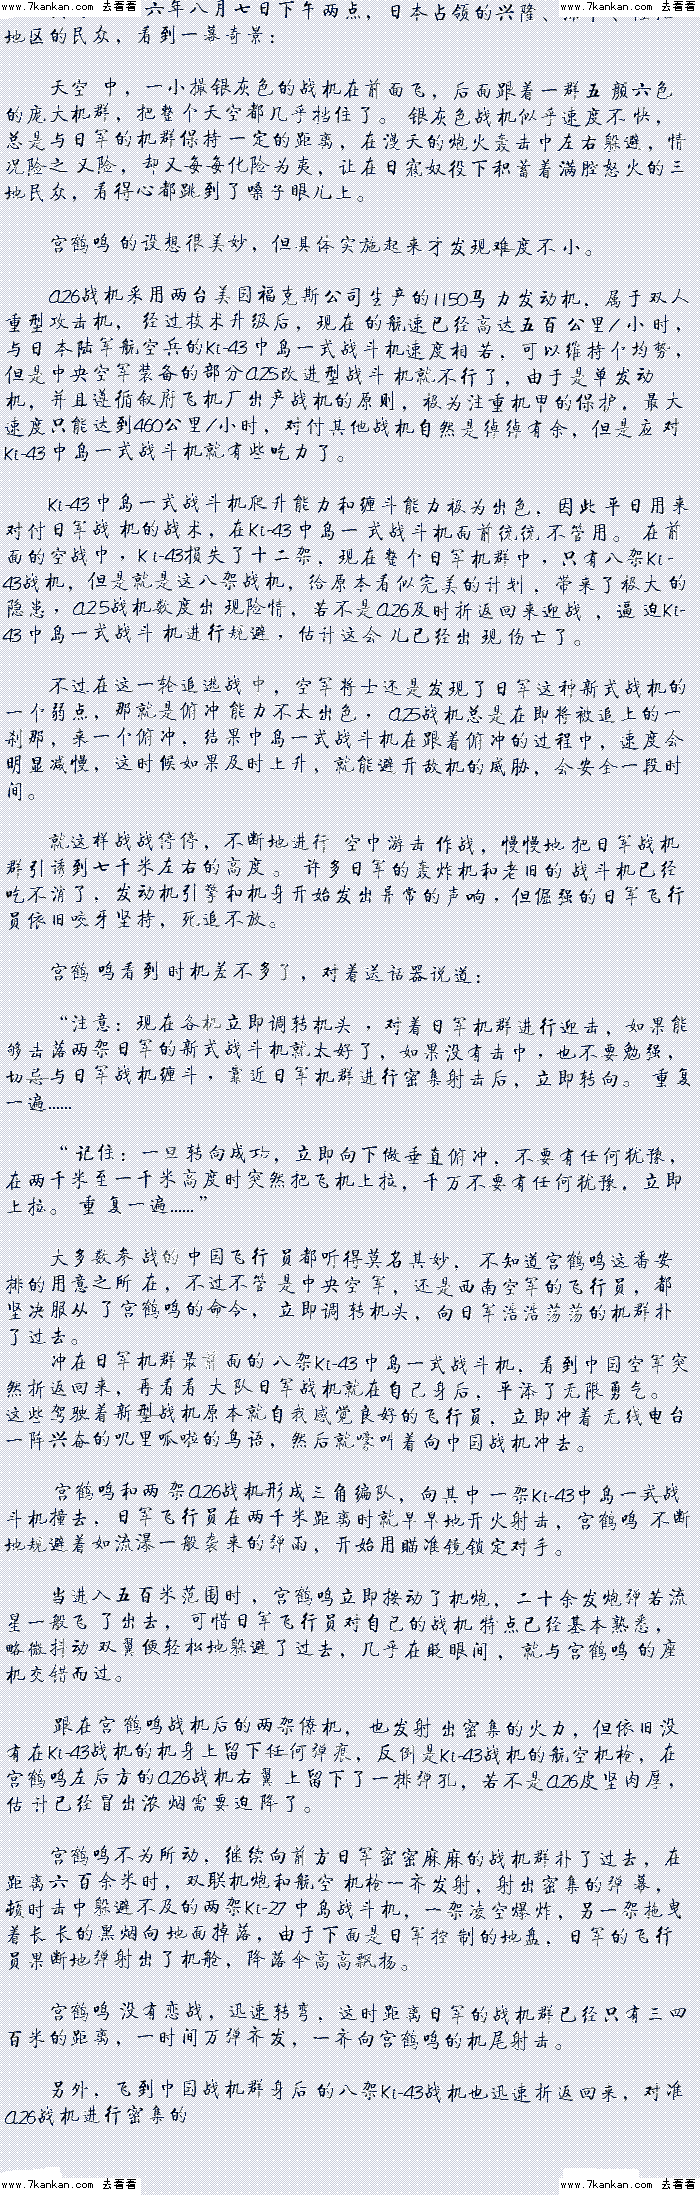 www.7kankan.com 去看看
www.7kankan.com 去看看
六年八月七日下午两点，日本占领的兴隆、
地区的民众，看到一幕奇景：
天空 中，一小撮银灰色的战机在前面飞，后面跟着一群五 颜六色
的庞大机群，把整个天空都几乎档住了。 银灰色战机似乎速度不快，
总是与日军的机群保持一定的距离，在漫天的炮火轰击中左右躲避，情
况险之 又险，却又每每化险为夷，让在日寇奴役下积蓄着满腔怒火的三
地民众，看得心都跳到了嗓子眼儿上。
宫鹤鸣 的设想很美妙，但具体实施起来才发现难度不小。
Q26战机采用两台美国福克斯公司生产的1150马 力发动机，属于双人
重型攻击机， 经过技术升级后，现在 的航速已经高达五百公里/小时，
与日 本陆军航空兵的Ki-43中岛一式战斗机速度相 若，可以维持个均势，
但是中央空军装备的部分Q25改进型战斗 机就不行了，由于是单发动
机，并且遵循叙府飞机厂出产战机的原则，极为注重机甲的保护，最大
速度只能达到460公里/小时，对付其他战机自然是绰绰有余，但是应对
Ki-43中岛一式战斗机就有些吃力了。
Ki-43中岛一式战斗机爬升能力和缠斗能力极为出色，因此平日用来
对付日军战 机的战术，在Ki-43中岛一 式战斗机面前统统不管用。 在前
面的空战中，Ki-43损失了十二架，现在整个日军机群中，只有八架Ki-
43战机，但是就是这八架战机，给原本看似完美的计划，带来了极大的
隐患，Q25战机数度出 现险情，若不是Q26及时折返回来迎战 ，逼迫Ki-
43中岛一式战斗机进行规避，估计这会 儿已经出 现伤亡了。
不过在这一轮追逃战 中，空军将士还是发现了日军这种新式战机的
一个弱点，那就是俯冲能力不太出色，Q25战机总是在即将被追上的一
刹那，来一个俯冲，结果中岛一式战斗机在跟着俯冲的过程中，速度会
明显减慢，这时候如果及时上升，就能避开敌机的威胁，会安全一段时
间。
就这样战战停停，不断地进行 空中游击 作战，慢慢地 把日军战机
群引诱到七千米左右的高度。 许多日军的轰炸机和老旧的战斗机已经
吃不消了，发动机引擎和机身开始发出异常的声响，但倔强的日军飞行
员依旧咬牙坚持，死追不放。
宫鹤 鸣看到时机差不多了，对着送话器说道：
“注意：现在各机立即调转机头 ，对着日军机群进行迎击，如果能
够击落两架日军的新式战斗机就太好了，如果没有击中，也不要勉强，
切忌与日军战机缠斗，靠近日军机群进行密集射击后，立即转向。 重复
一遍……
“记住：一旦转向成功，立即向下做垂直俯冲，不要有任何犹豫，
在两千米至一千米高度时突然把飞机上拉，千万不要有任何犹豫，立即
上拉。 重 复一遍……”
大多数参 战的中国飞行 员都听得莫名其妙， 不知道宫鹤鸣这番安
排的用意之所 在，不过不管 是中央空 军，还是西南空军的飞行员，都
坚决服从 了宫鹤鸣的命令， 立即调 转机头，向日军浩浩荡荡的机群扑
了过去。
冲在日军机群最前 面的 八架Ki-43中岛一式战斗机，看到中国空军突
然折返回来，再看看 大队日军战机就在自己身后，平添了无限勇气。
这些驾驶着新型战机原本就自我感觉良好的飞行员，立即冲着 无线电台
一阵兴奋的呢里呱啦的鸟语，然后就嚎叫着向中国战机冲去。
宫鹤鸣和两 架Q26战机形成三角编队，向其中 一架Ki-43中岛一式战
斗机撞去，日军飞行员在两千米距离时就早早地开火射击，宫鹤鸣 不断
地规避着如流瀑一般袭来的弹雨，开始用瞄准镜锁定对手。
当进入五百米范围时 ，宫鹤鸣立即按动了机炮，二十余发炮弹若流
星一般飞 了出去， 可惜日军飞行员对自己的战机 特点已经基本熟悉，
略微抖动 双翼便轻松地躲避了过去，几乎在眨眼间， 就与宫鹤鸣 的座
机交错而过。
跟在宫 鹤鸣战机后的两架僚机， 也发射 出密集的火力，但依旧没
有在Ki-43战机的机身上留下任何弹痕，反倒是Ki-43战机的航空机枪，在
宫鹤鸣左后方的Q26战机右翼 上留下了一排弹孔，若不是Q26皮坚肉厚，
估 计已经冒出浓 烟需要迫 降了。
宫鹤鸣不为所动，继续向前方日军密密麻麻的战机群扑了过去，在
距离六 百余米时，双联机炮和航空 机枪一齐发射，射出密集的弹 幕，
顿时击中躲避不及的两架Ki-27中岛战斗机，一架凌空爆炸，另一架拖曳
着长 长的黑烟向 地面掉落，由于下面是日军控 制的地盘，日军的飞行
员果断地弹射出了机舱，降落伞高高飘扬。
宫鹤鸣 没有恋战，迅速转弯，这时距离日军的战机群已经只有三四
百米的距离，一时间万弹齐发，一齐向宫鹤鸣的机尾射击。
另外，飞到中国战机群身后 的八架Ki-43战机也迅速折返回来，对准
Q26战机进行密集的
www.7kankan.com 去看看
www.7kankan.com 去看看